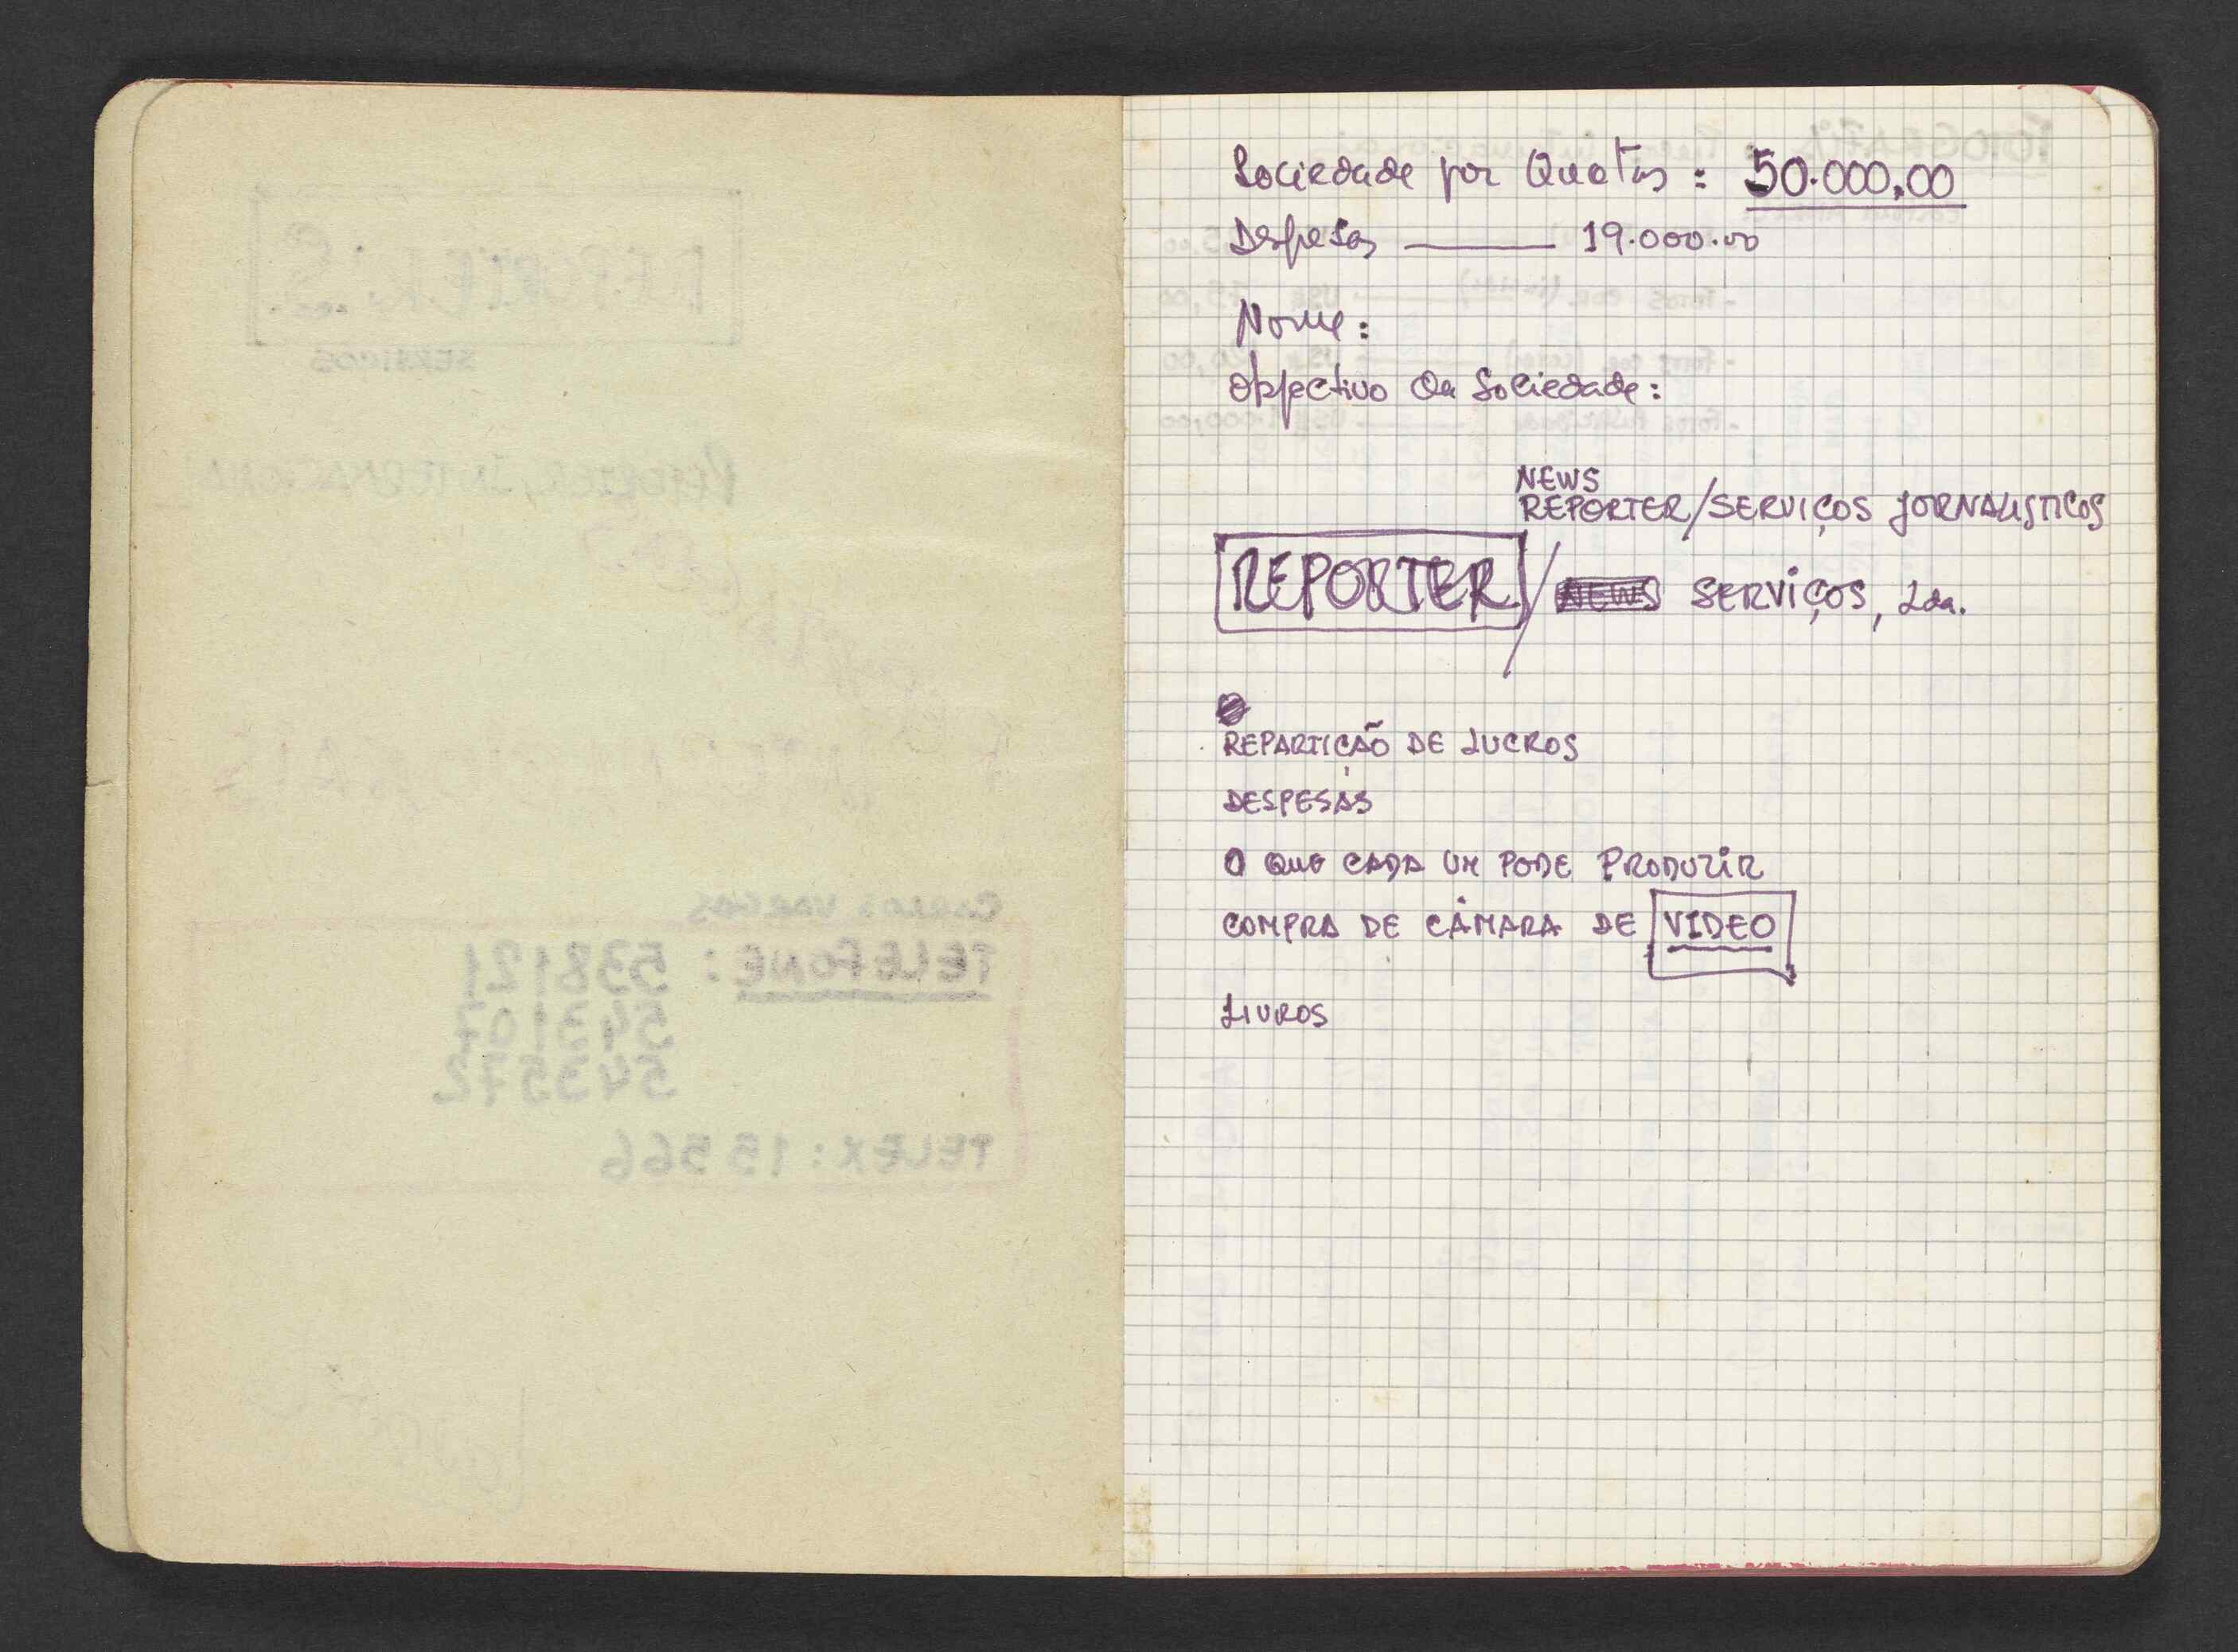 Sociedade por Quotas : 50.000,00
Despesas — 19.000.00
Nome :
Objectivo da Sociedade :
NEWS
REPORTER/SERVIÇOS JORNALISTICOS
REPORTER / NEWS SERVIÇOS, Lda.
REPARTIÇÃO DE LUCROS
DESPESAS
O QUE CADA UM PODE PRODUZIR
COMPRA DE CÂMARA DE VIDEO
LIVROS
CARLOS VARGAS
TELEFONE : 538121
543107
543572
TELEX : 15566